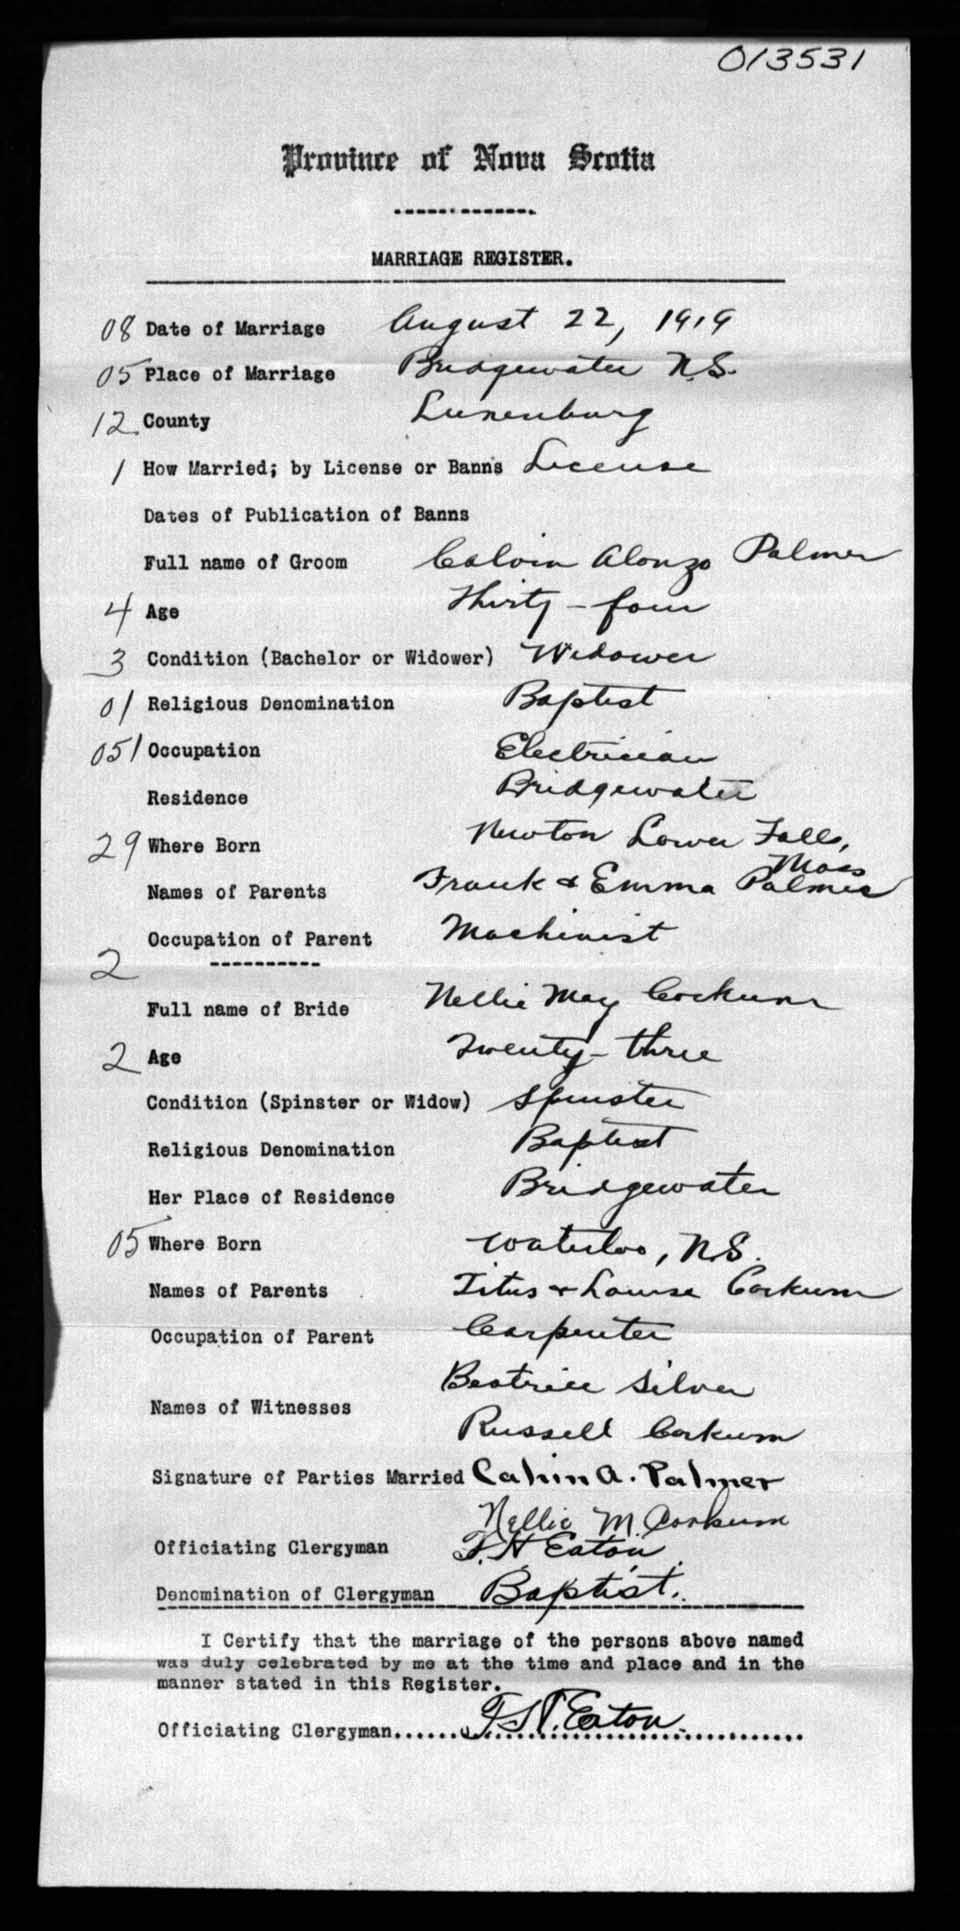 013531
Province of Nova Scotia
MARRIAGE REGISTER.
08 Date of Marriage August 22, 1919
05 Place of Marriage Bridgewater N.S.
12 County Lunenburg
1 How Married; by License or Banns License
Dates of Publication of Banns
Full name of Groom Calvin Alonzo Palmer
4 Age Thirty-four
3 Condition (Bachelor or Widower) Widower
01 Religious Denomination Baptist
051 Occupation Electrician
Residence Bridgewater
29 Where Born Newton Lower Falls,
Mass
Names of Parents Frank & Emma Palmer
Occupation of Parent Machinist
2
Full name of Bride Nellie May Corkum
2 Age Twenty-three
Condition (Spinster or Widow) Spinster
Religious Denomination Baptist
Her Place of Residence Bridgewater
05 Where Born Waterloo, N.S.
Names of Parents Titus & Louise Corkum
Occupation of Parent Carpenter
Beatrice Silver
Names of Witnesses
Russell Corkum
Signature of Parties Married Calvin A. Palmer
Nellie M. Corkum
Officiating Clergyman Eaton
Denomination of Clergyman Baptist.
I Certify that the marriage of the persons above named
was duly celebrated by me at the time and place and in the
manner stated in this Register.
Officiating Clergyman...... Eaton.